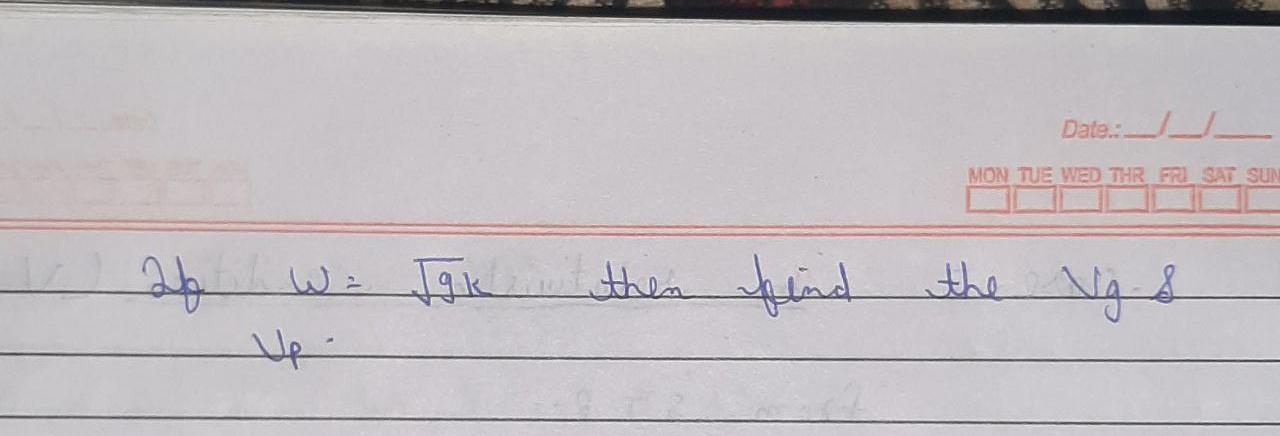 Date.: _/_/_
MON TUE WED THR FRI SAT SUN
If W = √gk then find the Vg &
Vp.